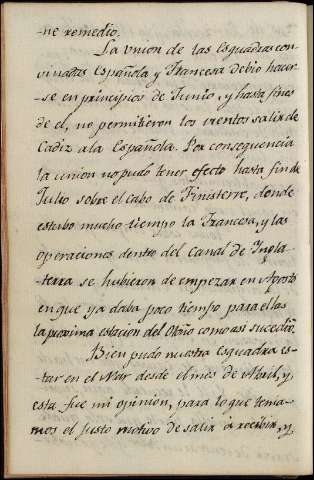 -ne remedio.
La union de las Esquadras con
vinadas Española y Francesa debio hacer
-se en principios de Junio, y hasta fines
de el, no permitieron los vientos salir de
Cadiz a la Española. Por conseguencia
la union no pudo tener efecto hasta fin de
Julio sobre el Cabo de Finisterre, donde
estubo mucho tiempo la Francesa, y las
operaciones dentro del Canal de Yngla
-terra se hubieron de empezar en Agosto
en que ya daba poco tiempo para ellas
la proxima estacion del Otoño como asi sucedio.
Bien pudo nuestra Esquadra es-
-tar en el Mar desde el mes de Abril, y
esta fue mi opinion, para lo que tenia-
mos el justo motivo de salir à recibir, y